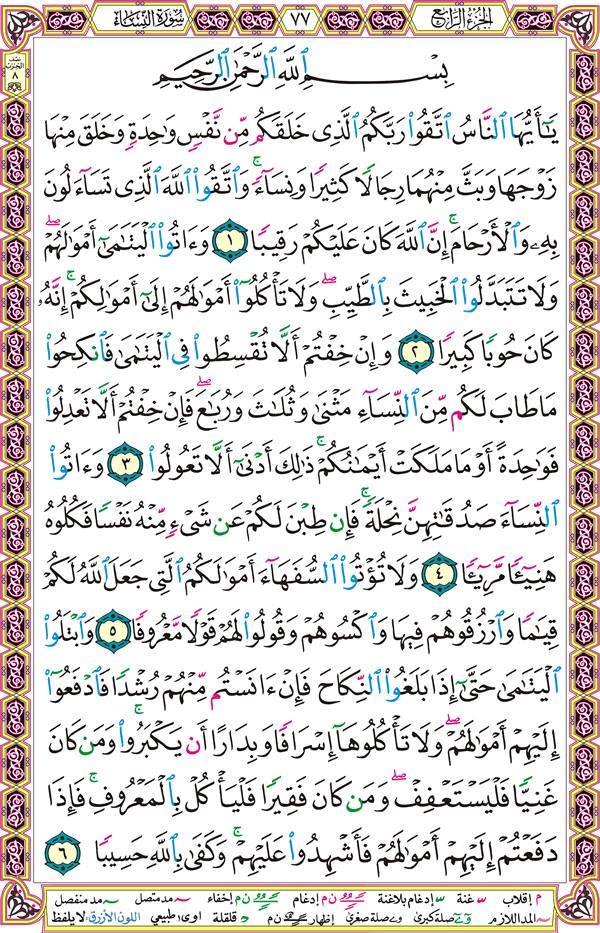 الجزء الرابع
٧٧
سورة النساء
نصف الحزب ٨
بِسْمِ ٱللَّهِ ٱلرَّحْمَٰنِ ٱلرَّحِيمِ
يَٰٓأَيُّهَا ٱلنَّاسُ ٱتَّقُوا۟ رَبَّكُمُ ٱلَّذِى خَلَقَكُم مِّن نَّفْسٍ وَٰحِدَةٍ وَخَلَقَ مِنْهَا
زَوْجَهَا وَبَثَّ مِنْهُمَا رِجَالًا كَثِيرًا وَنِسَآءً ۚ وَٱتَّقُوا۟ ٱللَّهَ ٱلَّذِى تَسَآءَلُونَ
بِهِۦ وَٱلْأَرْحَامَ ۚ إِنَّ ٱللَّهَ كَانَ عَلَيْكُمْ رَقِيبًا ١ وَءَاتُوا۟ ٱلْيَتَٰمَىٰٓ أَمْوَٰلَهُمْ ۖ
وَلَا تَتَبَدَّلُوا۟ ٱلْخَبِيثَ بِٱلطَّيِّبِ ۖ وَلَا تَأْكُلُوٓا۟ أَمْوَٰلَهُمْ إِلَىٰٓ أَمْوَٰلِكُمْ ۚ إِنَّهُۥ
كَانَ حُوبًا كَبِيرًا ٢ وَإِنْ خِفْتُمْ أَلَّا تُقْسِطُوا۟ فِى ٱلْيَتَٰمَىٰ فَٱنكِحُوا۟
مَا طَابَ لَكُم مِّنَ ٱلنِّسَآءِ مَثْنَىٰ وَثُلَٰثَ وَرُبَٰعَ ۖ فَإِنْ خِفْتُمْ أَلَّا تَعْدِلُوا۟
فَوَٰحِدَةً أَوْ مَا مَلَكَتْ أَيْمَٰنُكُمْ ۚ ذَٰلِكَ أَدْنَىٰٓ أَلَّا تَعُولُوا۟ ٣ وَءَاتُوا۟
ٱلنِّسَآءَ صَدُقَٰتِهِنَّ نِحْلَةً ۚ فَإِن طِبْنَ لَكُمْ عَن شَىْءٍ مِّنْهُ نَفْسًا فَكُلُوهُ
هَنِيٓـًٔا مَّرِيٓـًٔا ٤ وَلَا تُؤْتُوا۟ ٱلسُّفَهَآءَ أَمْوَٰلَكُمُ ٱلَّتِى جَعَلَ ٱللَّهُ لَكُمْ
قِيَٰمًا وَٱرْزُقُوهُمْ فِيهَا وَٱكْسُوهُمْ وَقُولُوا۟ لَهُمْ قَوْلًا مَّعْرُوفًا ٥ وَٱبْتَلُوا۟
ٱلْيَتَٰمَىٰ حَتَّىٰٓ إِذَا بَلَغُوا۟ ٱلنِّكَاحَ فَإِنْ ءَانَسْتُم مِّنْهُمْ رُشْدًا فَٱدْفَعُوٓا۟
إِلَيْهِمْ أَمْوَٰلَهُمْ ۖ وَلَا تَأْكُلُوهَآ إِسْرَافًا وَبِدَارًا أَن يَكْبَرُوا۟ ۚ وَمَن كَانَ
غَنِيًّا فَلْيَسْتَعْفِفْ ۖ وَمَن كَانَ فَقِيرًا فَلْيَأْكُلْ بِٱلْمَعْرُوفِ ۚ فَإِذَا
دَفَعْتُمْ إِلَيْهِمْ أَمْوَٰلَهُمْ فَأَشْهِدُوا۟ عَلَيْهِمْ ۚ وَكَفَىٰ بِٱللَّهِ حَسِيبًا ٦
م إقلاب غنة إدغام بلاغنة ن م إدغام ن م إخفاء مد متصل مد منفصل
المد اللازم صلة كبرى صلة صغرى إظهار ن م قلقلة ا و ى طبيعي اللون الأزرق: لا يلفظ